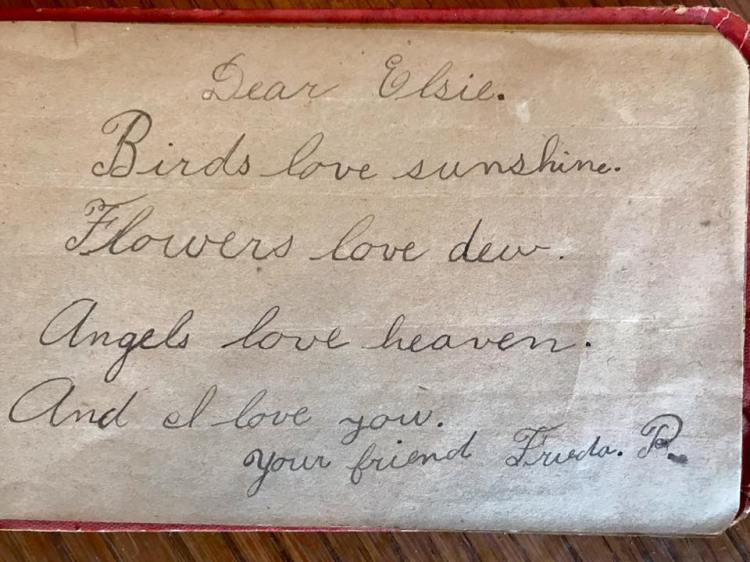 Dear Elsie.
Birds love sunshine.
Flowers love dew.
Angels love heaven.
And I love you.
Your friend Frieda. P.